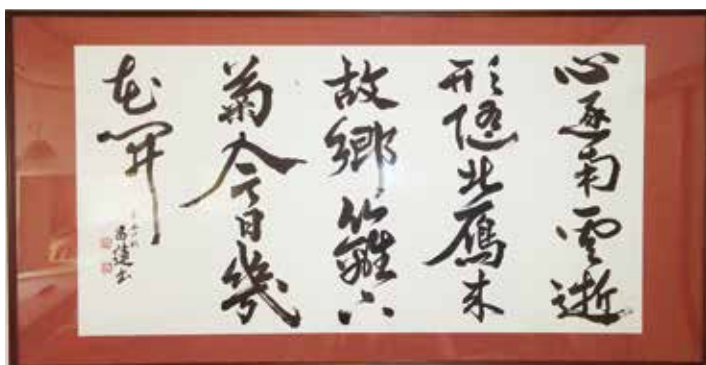 心逐南雲逝
形隨北雁来
故鄉籬下
菊今日幾
花開
書